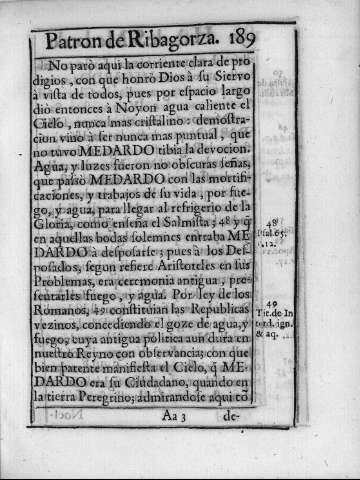 Patron de Ribagorza. 189
No parò aqui la corriente clara de pro
digios, con que honrò Dios à su Siervo
à vista de todos, pues por espacio largo
diò entonces à Noyon agua caliente el
Cielo, nunca mas cristalino: demostra-
cion vino à ser nunca mas puntual, que
no tuvo MEDARDO tibia la devocion.
Agua, y luzes fueron no obscuras señas,
que passò MEDARDO con las mortifi-
caciones, y trabajos de su vida, por fue-
go, y agua, para llegar al refrigerio de la
Gloria, como enseña el Salmista; 48 y q̃
en aquellas bodas solemnes entraba ME
DARDO à desposarse; pues à los Des-
posados, segun refiere Aristoteles en sus
Problemas, era ceremonia antigua, pre-
sentarles fuego, y agua. Por ley de los
Romanos, 49 constituìan las Republicas
vezinos, concediendo el goze de agua, y
fuego, cuya antigua politica aun dura en
nuestro Reyno con observancia; con que
bien patente manifiesta el Cielo, q̃ ME-
DARDO era su Ciudadano, quando en
la tierra Peregrino; admirandose aqui cõ
Aa 3 de-
48
Psal. 65.
12.
49
Tit. de In
terd. ign.
& aq.